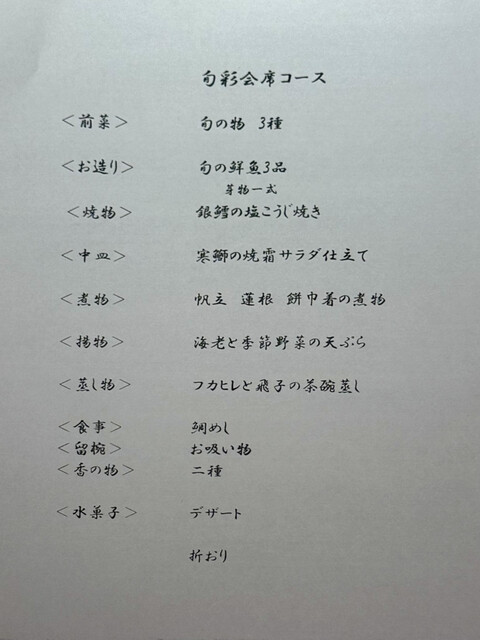 旬彩会席コース
<前菜> 旬の物 3種
<お造り> 旬の鮮魚3品
芽物一式
<焼物> 銀鱈の塩こうじ焼き
<中皿> 寒鰤の焼霜サラダ仕立て
<煮物> 帆立 蓮根 餅巾着の煮物
<揚物> 海老と季節野菜の天ぷら
<蒸し物> フカヒレと飛子の茶碗蒸し
<食事> 鯛めし
<留椀> お吸い物
<香の物> 二種
<水菓子> デザート
折おり